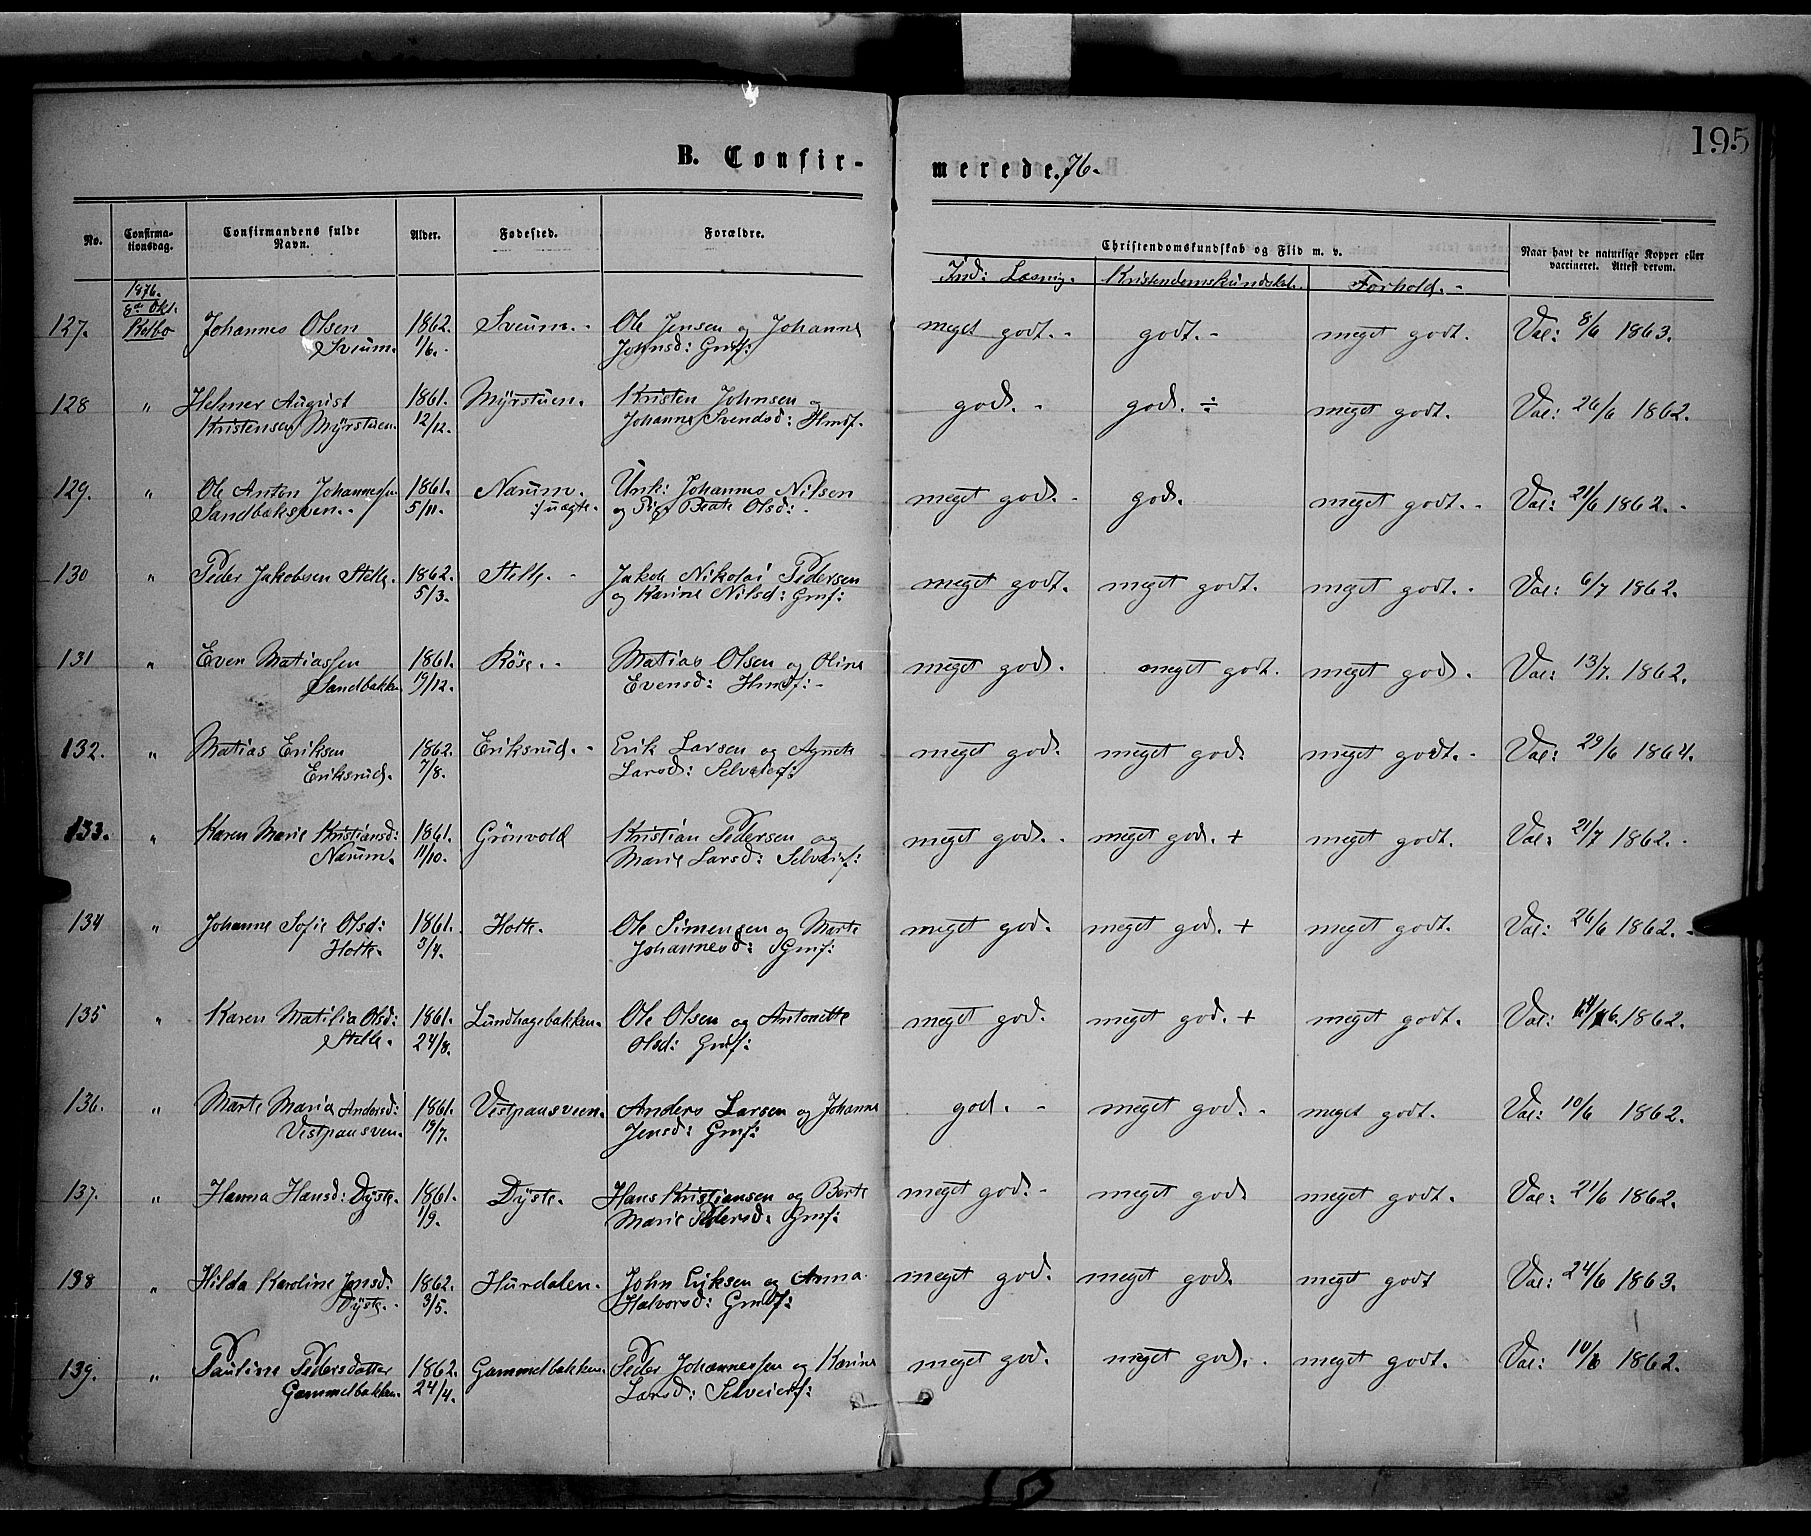 195
B. Confir- merede. 76.
No. Confirma-tionsdag. Confirmandens fulde Navn. Alder. Fødested. Forældre. Christendomskundskab og Flid m. v. Naar havt de naturlige Kopper eller vaccineret. Attest derom.
Ind: Læsnig. Kristendomskundskab. Forhold.
1876.
8de Okt.
127. Kolbo Johannes Olsen 1862. Sveum. Ole Jensen og Johanne meget godt. godt. meget godt. Vac: 8/6 1863.
Sveum. 1/6. Johnsd: Grmf:
128 " Helmer August 1861. Myrstuen. Kristen Johnsen og god. god. ÷ meget godt. Vac: 26/6 1862.
Kristensen Myrstuen. 12/12. Johanne Svendsd: Hmdf.
129. " Ole Anton Johannessen 1861. Narum. Unk: Johannes Nilsen meget god. god. meget godt. Vac: 21/6 1862.
Sandbaksven. 5/11. :/uægte. og Pige Beate Olsd:
130 " Peder Jakobsen Stelle. 1862. Stelle. Jakob Nikolai Pedersen meget godt. meget godt. meget godt. Vac: 6/7 1862.
5/3. og Karine Nilsd: Grmf:
131 " Even Matiassen 1861. Röse. Matias Olsen og Oline meget god. meget godt. meget god. Vac: 13/7. 1862.
Sandbakke. 19/12. Evensd: Hmdf:
132. " Matias Eriksen 1862. Eriksrud. Erik Larsen og Agnete meget god. meget god meget godt. Vac: 29/6 1864.
Eriksrud. 7/8. Larsd: Selveierf:
133. " Karen Marie Kristiansd: 1861. Grönvold Kristian Pedersen og meget god. meget god. + meget godt. Vac: 21/7 1862.
Narum. 11/10. Marie Larsd: Selveierf:
134 " Johanne Sofie Olsd: 1861. Hotte. Ole Simensen og Marte meget god. meget god. + meget godt. Vac: 26/6 1862.
Hotte. 3/4. Johannesd: Grmf:
135 " Karen Matilia Olsd: 1861. Lundhagebakken. Ole Olsen og Antonette meget god. meget god. + meget godt. Vac: 6.1862.
Stelle. 24/8. Olsd: Grmf:
136. " Marte Maria Andersd: 1861. Vestpansveen. Anders Larsen og Johanne god. meget god. meget godt. Vac: 10/6 1862.
Vestpansven. 19/7. Jensd: Grmf:
137. " Hanna Hansd: Dyste. 1861. Dyste. Hans Kristiansen og Berte meget god. meget god meget godt. Vac: 21/6 1862.
1/9. Marie Pedersd. Grmf:
138 " Hilda Karoline Jonsd: 1862. Hurdalen. John Eriksen og Anna meget god. meget god. meget godt Vac: 24/6 1863.
Dyste. 3/5. Halvorsd: Grmdf:
139. " Pauline Pedersdatter 1862. Gammelbakken. Peder Johannessen og Karine meget god. meget god. meget godt. Vac: 1862.
Gammelbakken. 24/4. Larsd: Selveierf: